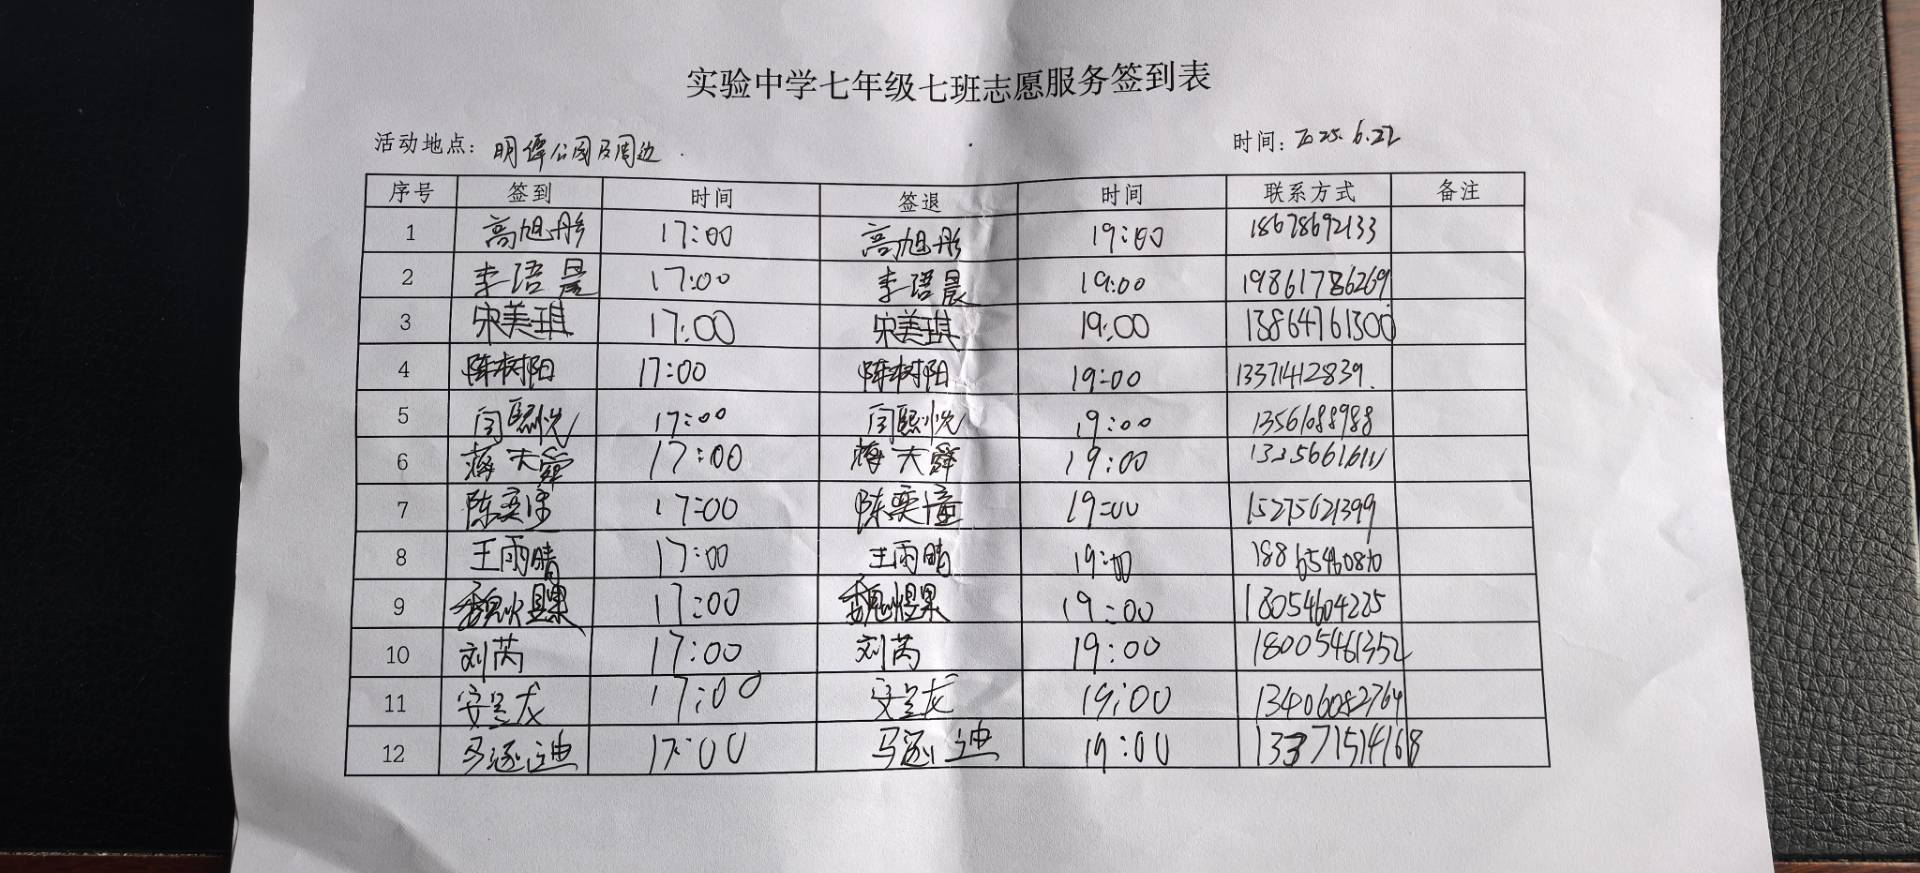 实验中学七年级七班志愿服务签到表
活动地点：明潭公园及周边 时间：2025.6.22
序号 签到 时间 签退 时间 联系方式 备注
1 高旭彤 17:00 高旭彤 19:00 18678692133
2 李语晨 17:00 李语晨 19:00 19861786269
3 宋美琪 17:00 宋美琪 19:00 13864761300
4 陈树阳 17:00 陈树阳 19:00 13371412839
5 闫熙悦 17:00 闫熙悦 19:00 13561088988
6 蒋天舜 17:00 蒋天舜 19:00
7 陈奕潼 17:00 陈奕潼 19:00 15275621399
8 王雨晴 17:00 王雨晴 19:00 18865460870
9 魏煜果 17:00 魏煜果 19:00 18054604225
10 刘芮 17:00 刘芮 19:00 18005461352
11 17:00 19:00 13406082764
12 马逐迪 17:00 马逐迪 19:00 13371514168